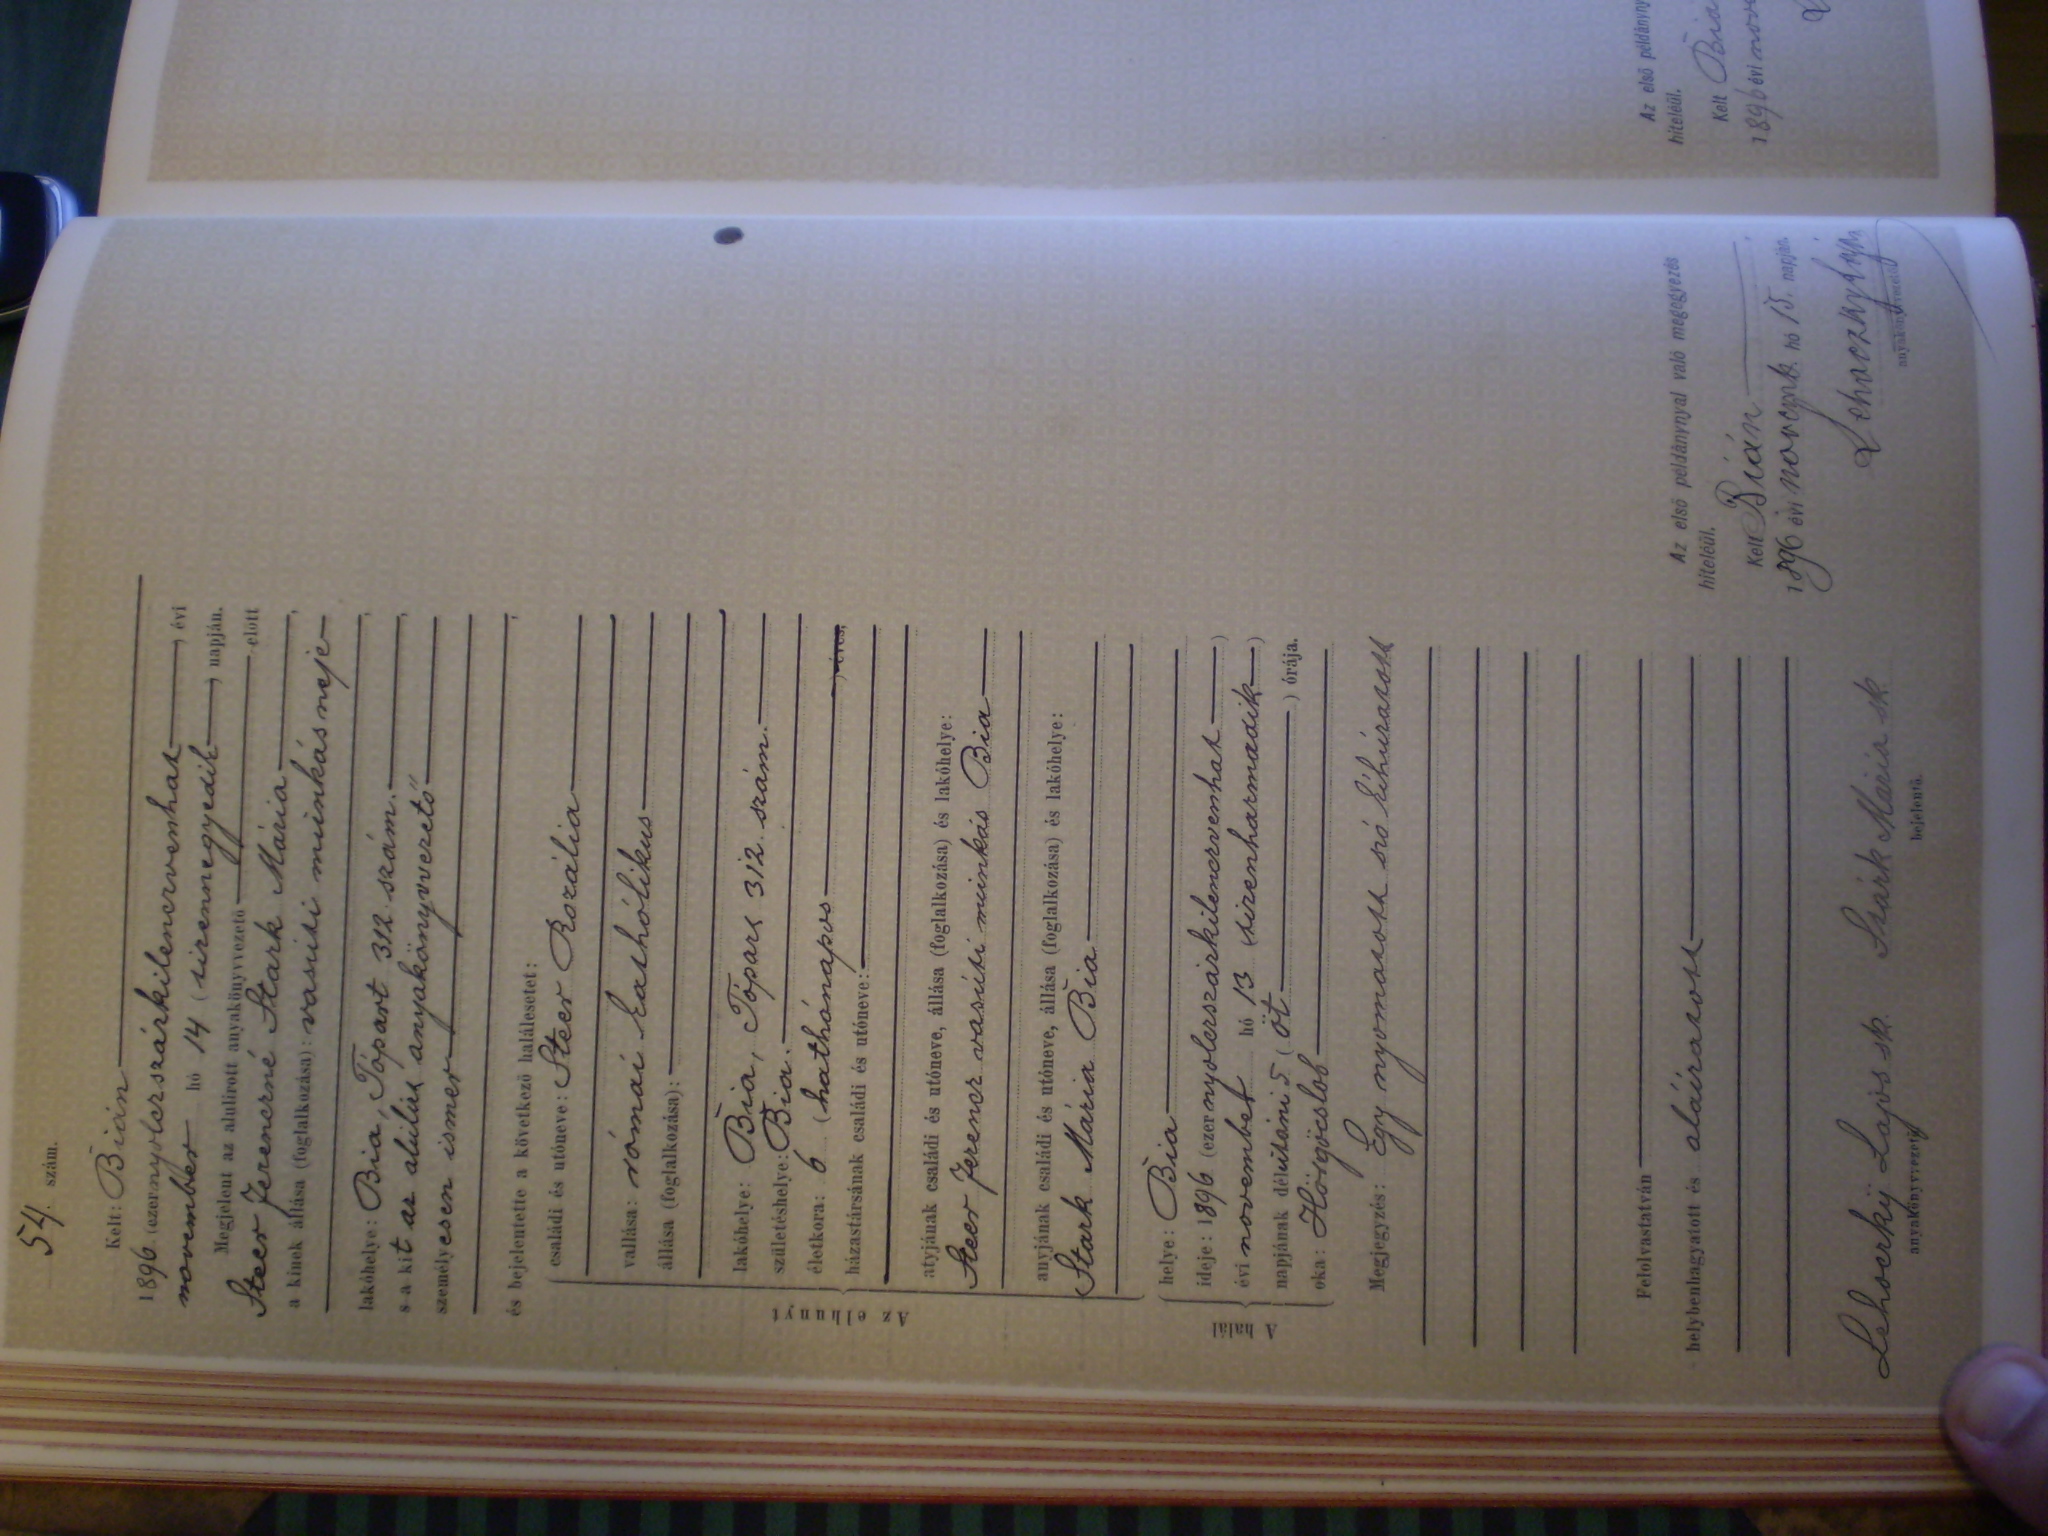 54. szám.
Kelt: Bián
1896 (ezernyolcszázkilencvenhat), évi
november hó 14 (tizennegyedik), napján.
Megjelent az alulirott anyakönyvvezető előtt
Steer Ferencné Stark Mária,
a kinek állása (foglalkozása): vasuti munkás neje
lakóhelye: Bia, Tópart 312. szám.,
s a kit az alúlírt anyakönyvvezető,
személyesen ismer
és bejelentette a következő halálesetet:
Az elhunyt
családi és utóneve: Steer Rozália
vallása: római kathólikus
állása (foglalkozása):
lakóhelye: Bia, Tópart 312. szám.
születéshelye: Bia.
életkora: 6 (hathónapos), éves,
házastársának családi és utóneve:
atyjának családi és utóneve, állása (foglalkozása) és lakóhelye:
Steer Ferencz vasúti munkás Bia
anyjának családi és utóneve, állása (foglalkozása) és lakóhelye:
Stark Mária Bia
A halál
helye: Bia
ideje: 1896 (ezernyolcszázkilencvenhat)
évi november hó 13 (tizenharmadik)
napjának délutáni 5 (öt) órája.
oka: Hörgőcslob
Megjegyzés: Egy nyomatott szó kihúzatott
Felolvastatván
helybenhagyatott és aláíratott
Lehoczky Lajos sk.
anyakönyvvezető.
Stárk Mária sk
bejelentő.
Az első példánynyal való megegyezés
hiteléül.
Kelt Bián
1896 évi novemb. hó 15. napján.
anyakönyvvezető
Az első példányny
hiteléül.
Kelt Biá
1896 évi nove